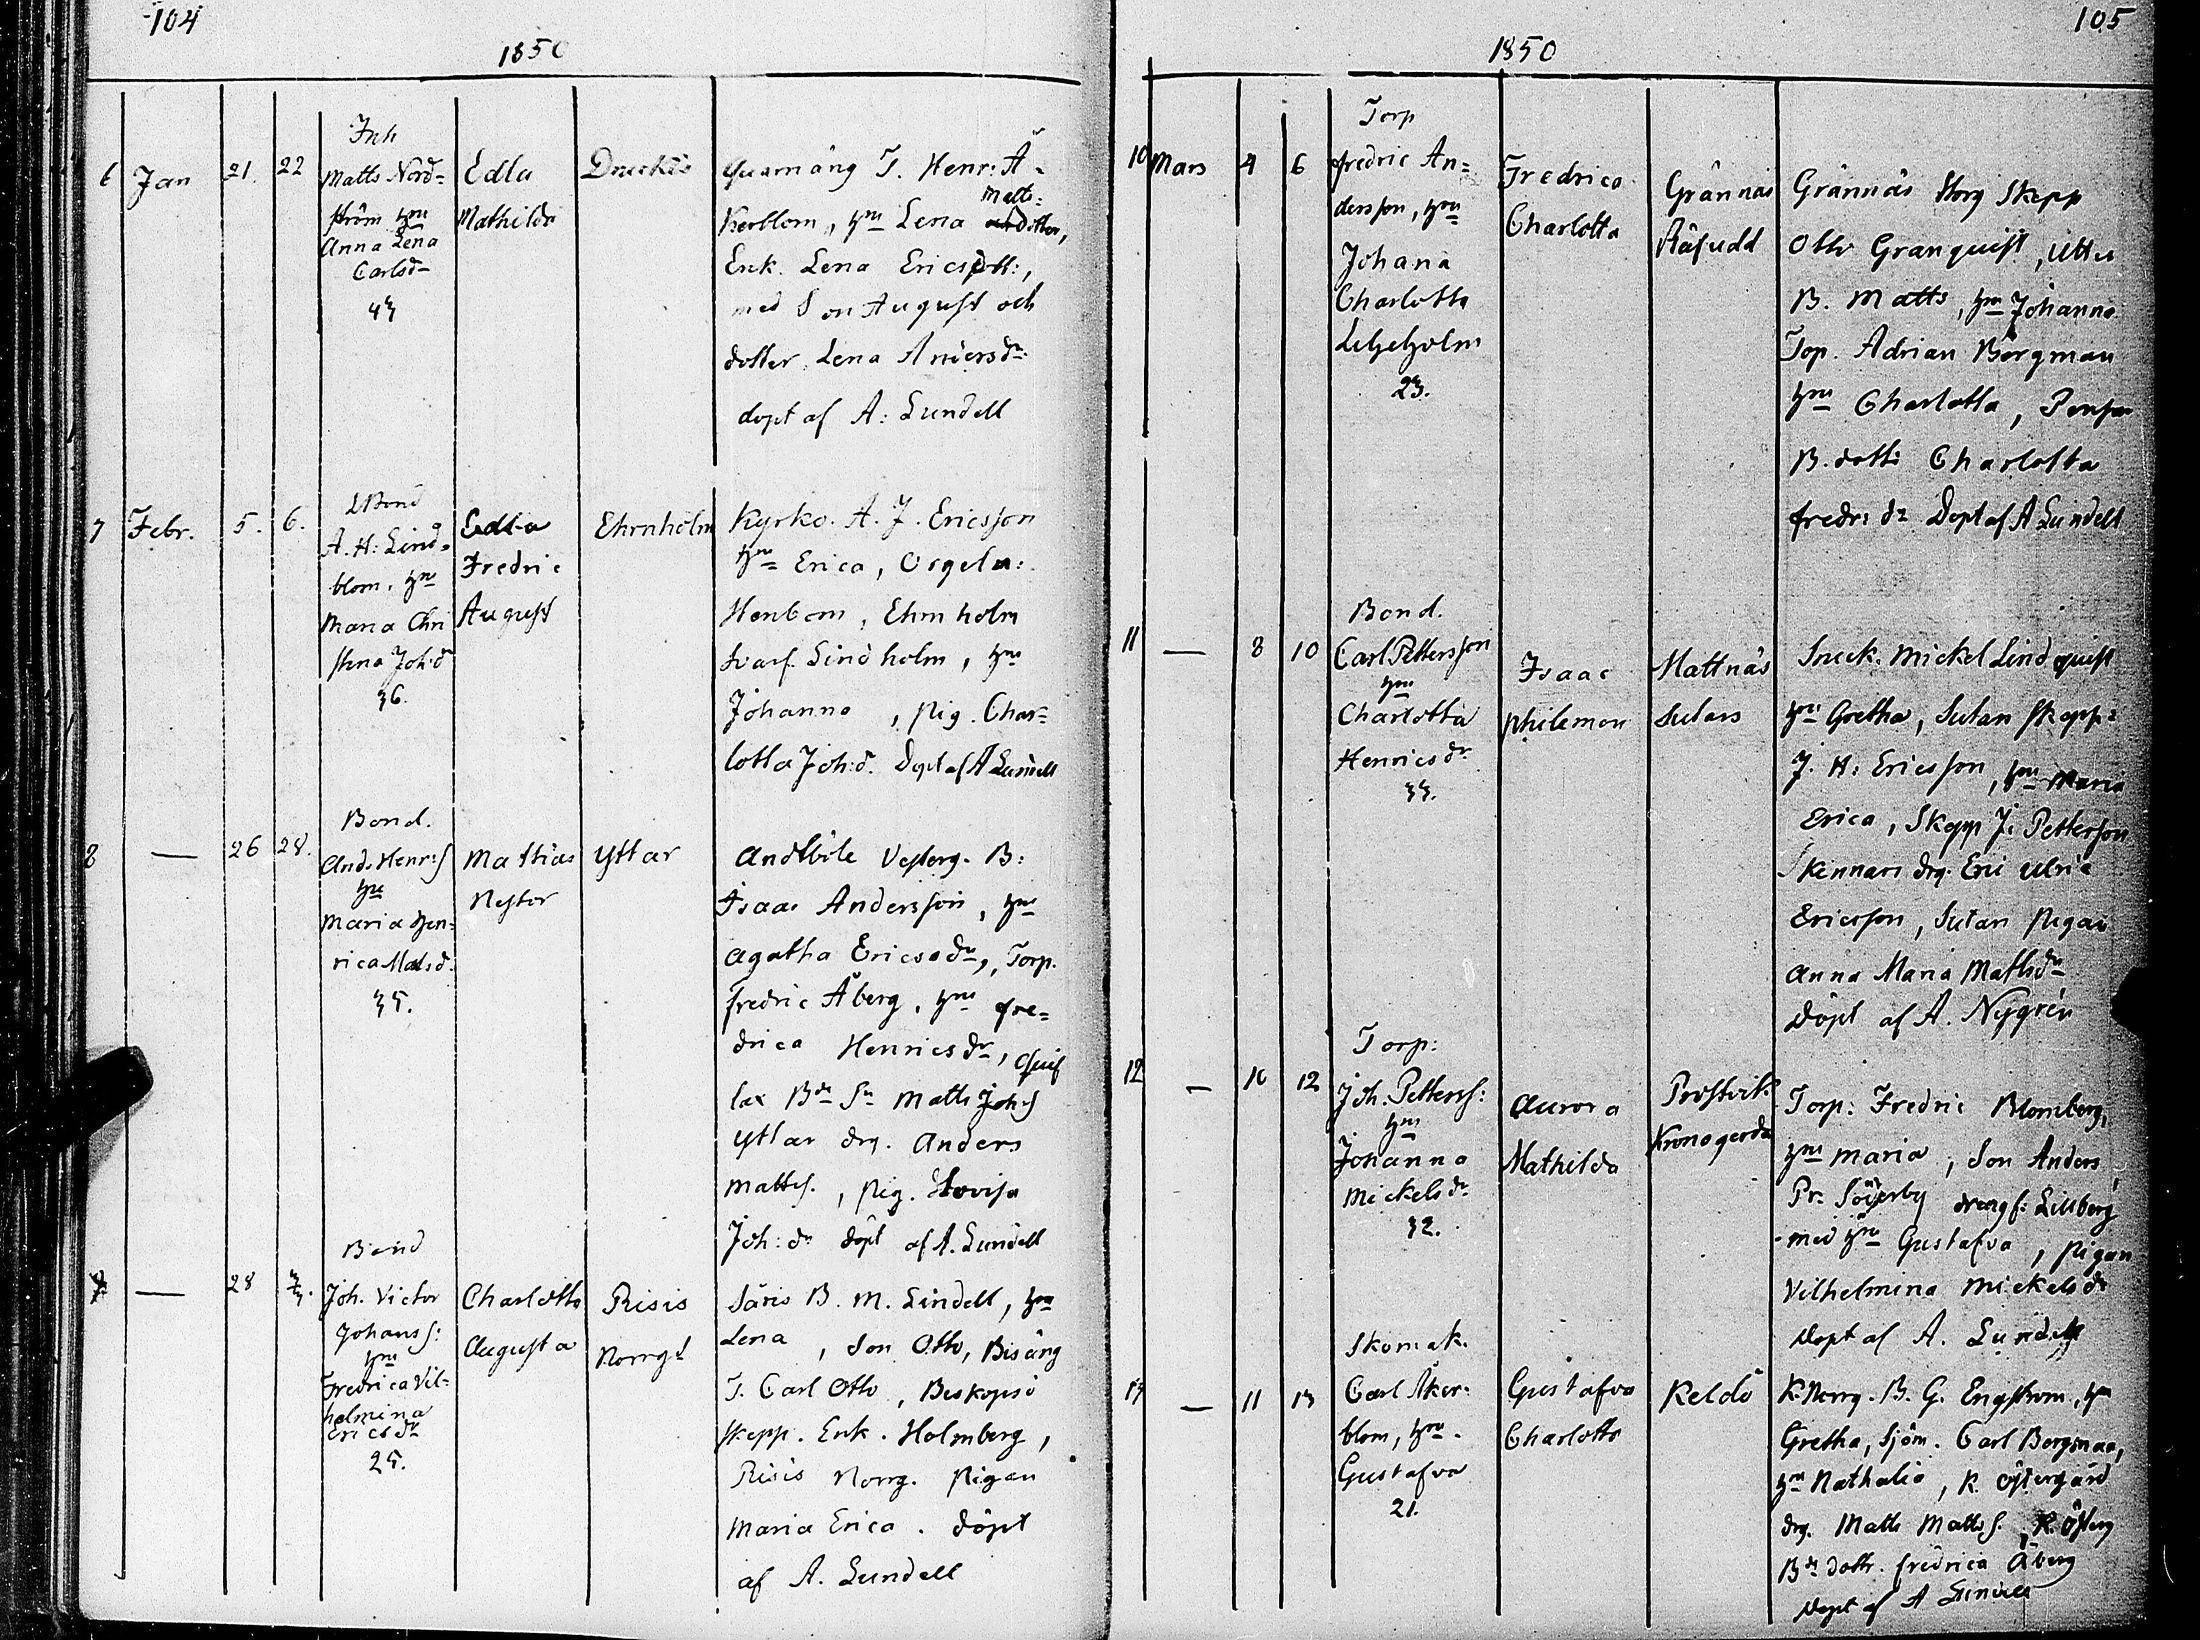 104
1850
6 Jan 21. 22
Inh
Matts Nord=
ström hu
Anna Lena
Carlsd
43
Edla
Mathilda
T. Henr: Å=
kerblom, hu Lena Matts:
dotter,
Enk. Lena Ericsdott:,
med Son August och
dotter Lena Andersdr
döpt af A: Lundell
7 Febr. 5. 6.
A. H: Lind=
blom, hu
Maria Chri
stina Joh:d
36.
Edla
Fredric
August
Ehrnholm
Kyrko. A. J. Ericsson
hu Erica, Orgeln:
Henbom, Ehrnholm
Lindholm, hu
Johanna, pig. Char=
lotta Joh:d. Döpt af A Lundell
8 — 26 28.
Bond.
And. Henr:s
hu
Maria Hen=
rica Matsd.
35.
Mathias
Nestor
Yttar
Andböle Vesterg. B:
Isaac Andersson, hu
Agatha Ericsdr, Torp.
Fredric Åberg, hu Fre=
drica Henricsdr,
lax Bde Sn Matts Joh:s
Yttar drg. Anders
Matts., pig. Lovisa
Joh: dr döpt af A. Lundell
— 28
Bond
Joh. Victor
Johans s:
hu
Fredrica Vil=
helmina
Ericsdr
25.
Charlotta
Augusta
Risis
Norrgd
Säris B. M. Lindell, hu
Lena, Son Otto, Bisäng
T. Carl Otto, Biskopsö
skepp. Enk. Holmberg,
Risis Norrg. pigan
Maria Erica. döpt
af A. Lundell
105
1850
10 Mars 4 6
Torp
Fredric An=
dersson, hu
Johana
Charlotta
Liljeholm
23.
Fredrica
Charlotta
Grännäs
Råfudd
Grännäs Storg Skepp
Otto Granquist,
B. Matts, hu Johanna
Torp. Adrian Bergman
hu Charlotta,
B. dott: Charlotta
Fredr: dr Döpt af A Lundell
11 — 8 10
Bond.
Carl Pettersson
hu
Charlotta
Henricsdr
33.
Isaac
Philemon
Mattnäs
Sutars
Snick. Mickel Lindquist
hu Gretha, Sutars skepp:
J. H: Ericsson, hu Maria
Erica, Skepp J. Pettersson
Skinnars drg. Eric Ulric
Ericsson, Sutars pigan
Anna Maria Mattsdr
döpt af A. Nygrén
12 — 10 12
Torp:
Joh. Petterss:
hu
Johanna
Mickelsdr
32.
Aurora
Mathilda
Prostvik
Kronogerda
Torp: Fredric Blomberg,
hu Maria, Son Anders,
Pr: Söderby drengs: Lillberg
med hu Gustafva, pigan
Vilhelmina Mickelsdr
döpt af A. Lundell
13 — 11 13
Skomak.
Carl Åker:
blom, hu
Gustafva
21.
Gustafva
Charlotta
Keldö
K. Norrg. B. G. Engström, hu
Gretha, Sjöm. Carl Bergman,
hu Nathalia, K. Östergård
drg. Matts Matts s., K. Österg
Bde dottr. Fredrica Åberg
döpt af A Lundell